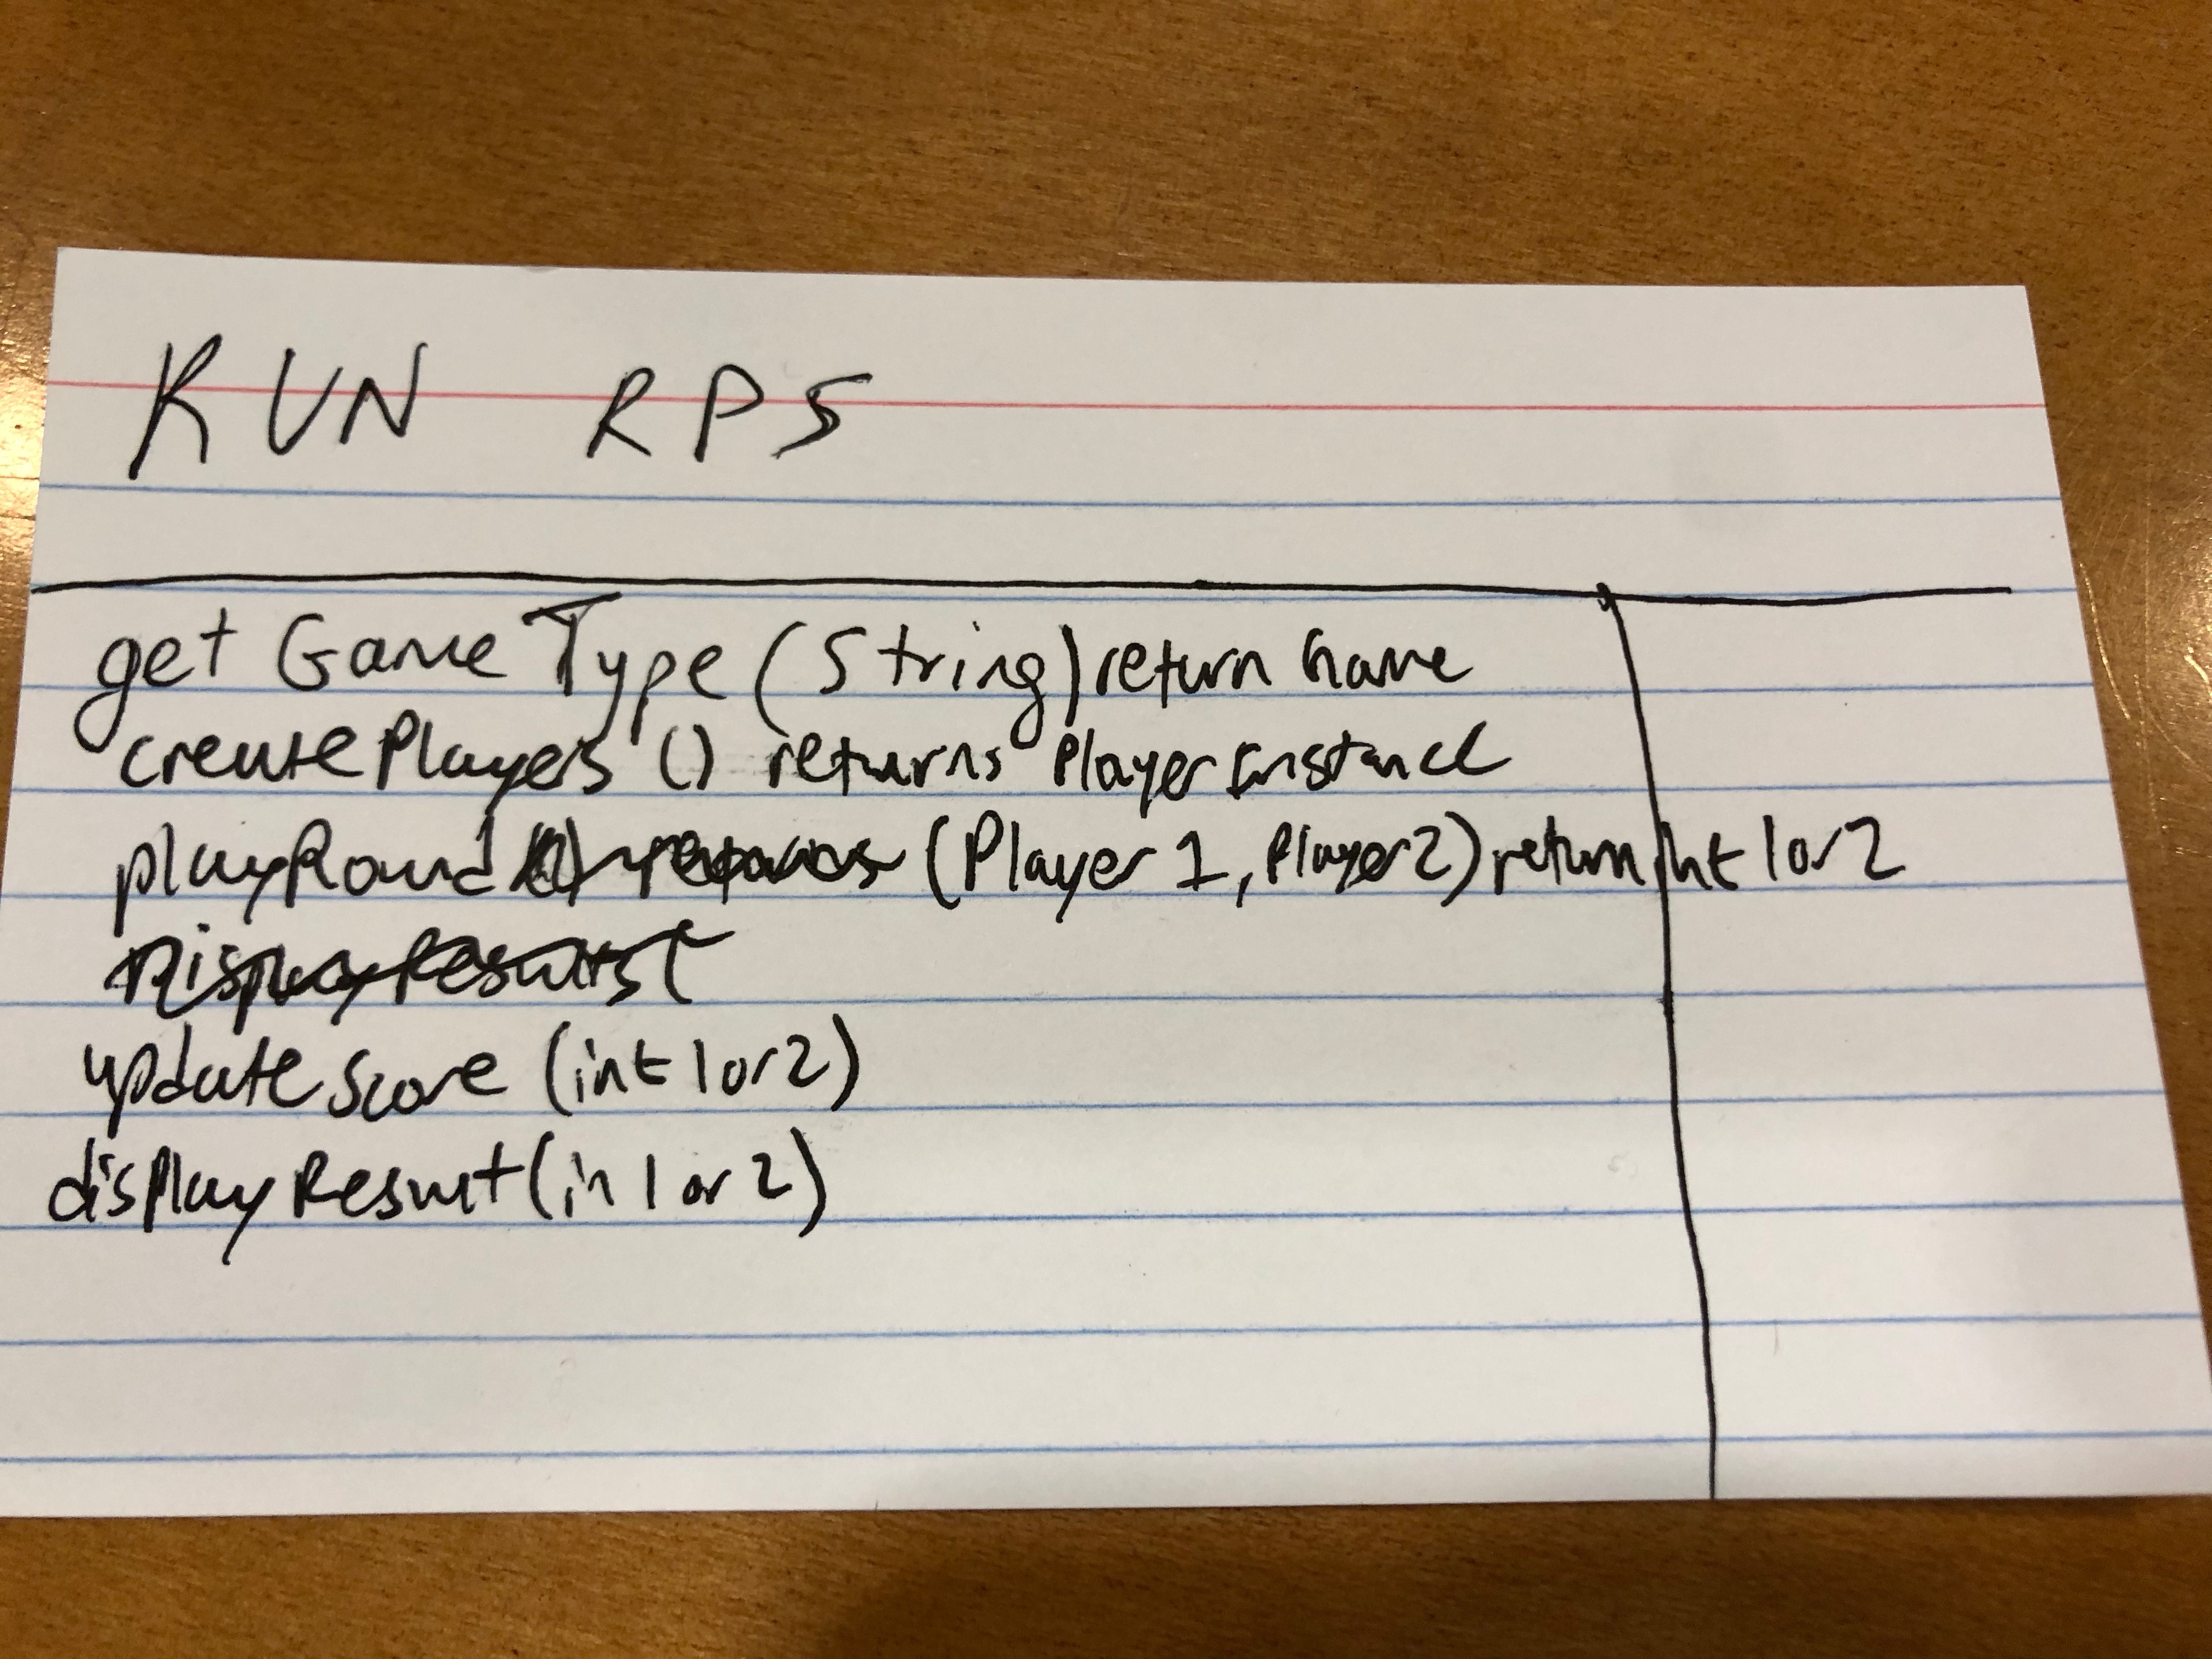 RUN RPS
get Game Type (String) return Game
createPlayers () returns Player instance
playRound () returns (Player 1, Player 2) return int 1 or 2
DisplayResults(
update Score (int 1 or 2)
displayResult (in 1 or 2)